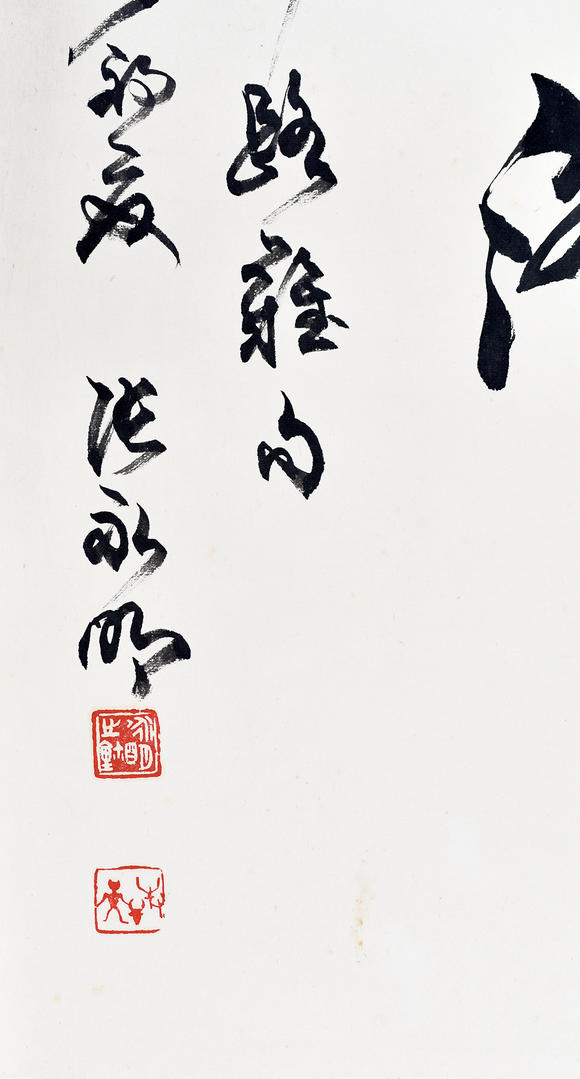 路難句
初夏 張永明